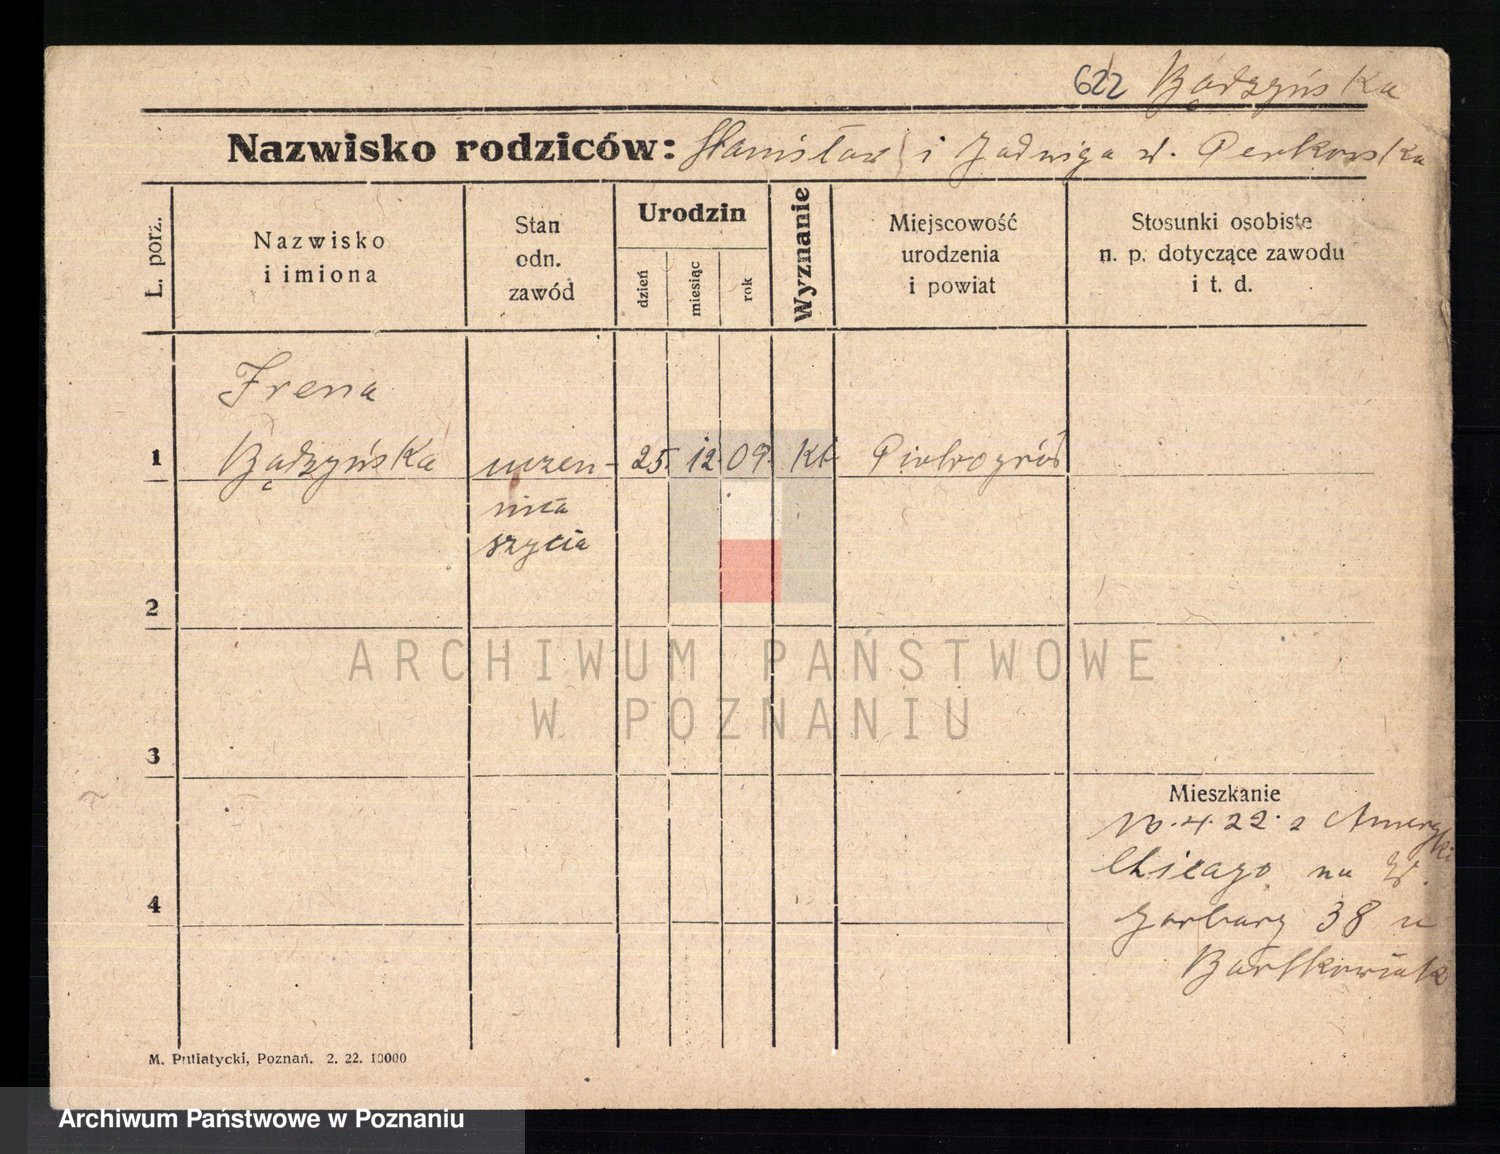 622 Bądzyńska
Nazwisko rodziców: Stanisław i Jadwiga z d. Perkowska
L. porz.
Nazwisko
i imiona
Stan
odn.
zawód
Urodzin
dzień
miesiąc
rok
Wyznanie
Miejscowość
urodzenia
i powiat
Stosunki osobiste
n. p. dotyczące zawodu
i t. d.
Irena
1 Bądzyńska uczen- 25. 12. 09. kt Piotrogród
nica
szycia
2
ARCHIWUM PAŃSTWOWE
W POZNANIU
3
Mieszkanie
10.4.22. z Ameryki
Chicago na W.
4
Garbary 38 u
Bartkowiak
M. Putiatycki, Poznań. 2. 22. 10000
Archiwum Państwowe w Poznaniu